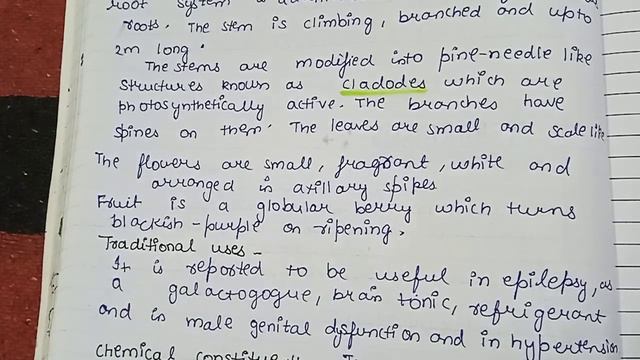 root system
roots. The stem is climbing, branched and upto
2m long.
The stems are modified into pine-needle like
structures known as cladodes which are
photosynthetically active. The branches have
spines on them. The leaves are small and scale like
The flowers are small, fragrant, white and
arranged in axillary spikes
Fruit is a globular berry which turns
blackish-purple on ripening.
Traditional uses -
It is reported to be useful in epilepsy, as
a galactogogue, brain tonic, refrigerant
and in male genital dysfunction and in hypertension
Chemical